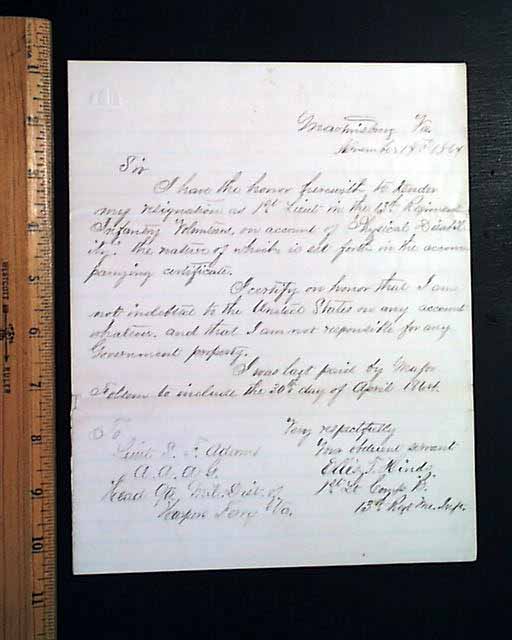 Martinsburg Va.
November 19th 1864
Sir
I have the honor herewith to tender
my resignation as 1st Lieut in the 13th Regiment
Infantry Volunteers, on account of "Physical Disabil-
ity." the nature of which is set forth in the accom-
panying certificate.
I certify on honor that I am
not indebted to the United States on any account
whatever. and that I am not responsible for any
Government property.
I was last paid by Major
to include the 30th day of April 1864.
Very respectfully
To
Your obedient servant
Lieut S. F. Adams
A. A. A. G.
1st Lt Comp. B.
Head Qrs Mil. Dist. of
Harpers Ferry Va.
13th Regt Me. Inf.